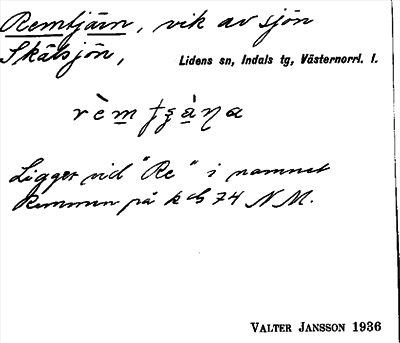 Remtjärn, vik av sjön
Skälsjön, Lidens sn, Indals tg, Västernorrl. l.
Ligger vid "Re" i namnet
Remmen på kbl 74 NM.
VALTER JANSSON 1936